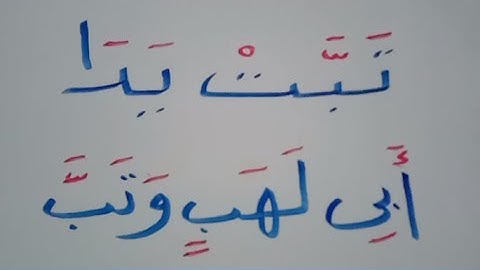 تَبَّتْ يَدَا
أَبِي لَهَبٍ وَتَبَّ